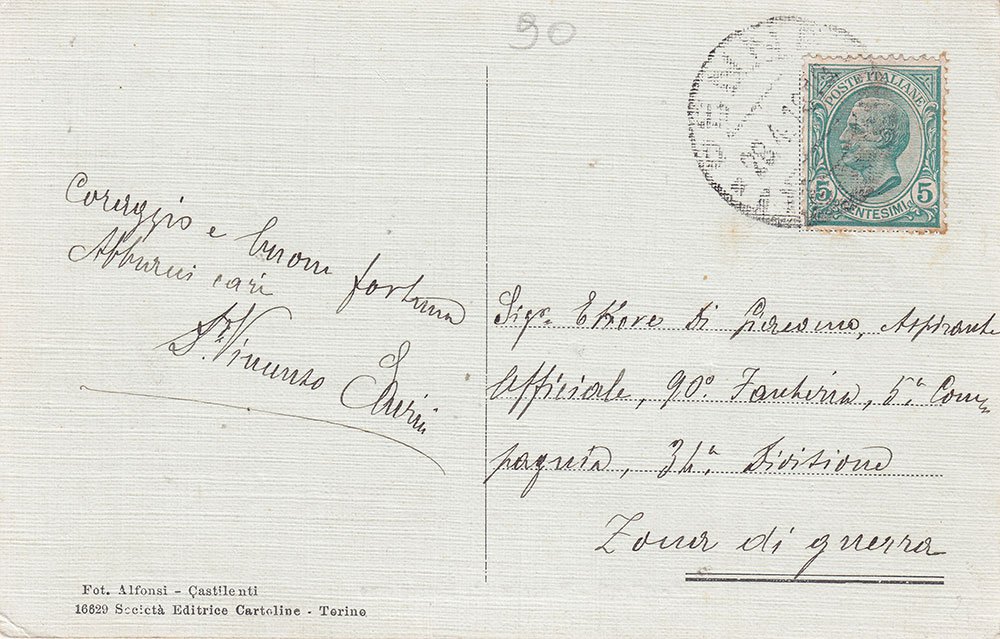 90
POSTE ITALIANE
5 5
CENTESIMI
Coraggio e buona fortuna
Abbracci cari
Dr. Vincenzo
Sigr. Ettore Di Giacomo, Aspirante
Ufficiale, 90º Fanteria, 5ª Com-
pagnia, 34ª Divisione
Zona di guerra
Fot. Alfonsi - Castilenti
16629 Società Editrice Cartoline - Torino